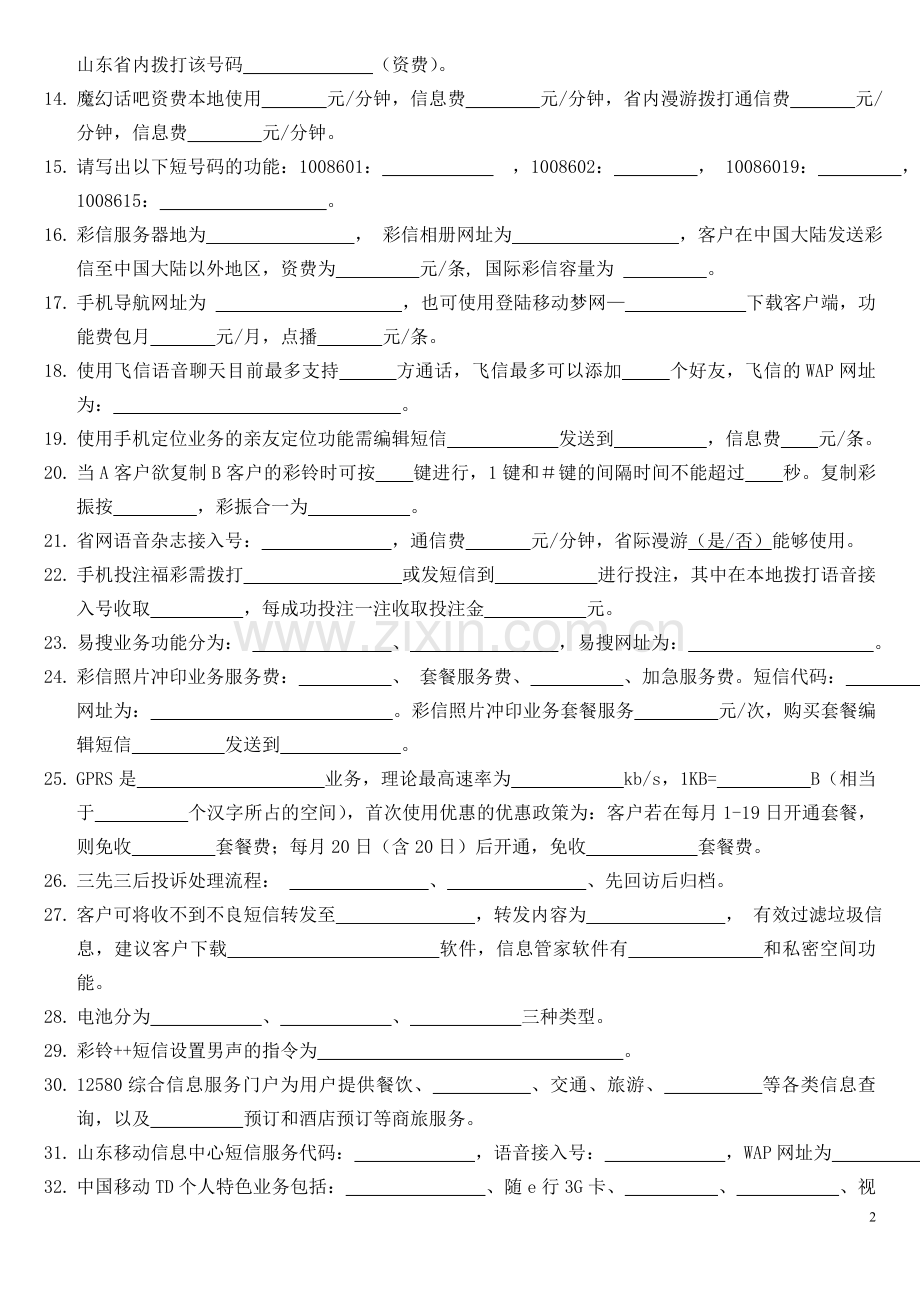 山东省内拨打该号码______________（资费）。
14. 魔幻话吧资费本地使用_______元/分钟，信息费________元/分钟，省内漫游拨打通信费_______元/
分钟，信息费________元/分钟。
15. 请写出以下短号码的功能：1008601：____________ ，1008602：_________， 10086019：_________，
1008615：__________________。
16. 彩信服务器地为________________， 彩信相册网址为__________________，客户在中国大陆发送彩
信至中国大陆以外地区，资费为_________元/条，国际彩信容量为 _________。
17. 手机导航网址为 ____________________，也可使用登陆移动梦网—_____________下载客户端，功
能费包月_______元/月，点播_______元/条。
18. 使用飞信语音聊天目前最多支持______方通话，飞信最多可以添加_____个好友，飞信的WAP网址
为：_______________________________。
19. 使用手机定位业务的亲友定位功能需编辑短信____________发送到__________，信息费____元/条。
20. 当A客户欲复制B客户的彩铃时可按____键进行，1键和＃键的间隔时间不能超过____秒。复制彩
振按_________，彩振合一为___________。
21. 省网语音杂志接入号：______________，通信费_______元/分钟，省际漫游（是/否）能够使用。
22. 手机投注福彩需拨打_________________或发短信到___________进行投注，其中在本地拨打语音接
入号收取__________，每成功投注一注收取投注金___________元。
23. 易搜业务功能分为： _______________、________________，易搜网址为：____________________。
24. 彩信照片冲印业务服务费：__________、 套餐服务费、__________、加急服务费。短信代码：________
网址为：__________________________。彩信照片冲印业务套餐服务_________元/次，购买套餐编
辑短信__________发送到_____________。
25. GPRS是____________________业务，理论最高速率为____________kb/s，1KB=__________B（相当
于__________个汉字所占的空间），首次使用优惠的优惠政策为：客户若在每月1-19日开通套餐，
则免收_________套餐费；每月20日（含20日）后开通，免收____________套餐费。
26. 三先三后投诉处理流程： _______________、_______________、先回访后归档。
27. 客户可将收不到不良短信转发至_______________，转发内容为_______________， 有效过滤垃圾信
息，建议客户下载_______________________软件，信息管家软件有_______________和私密空间功
能。
28. 电池分为____________、____________、____________三种类型。
29. 彩铃++短信设置男声的指令为_________________________________。
30. 12580综合信息服务门户为用户提供餐饮、__________、交通、旅游、__________等各类信息查
询，以及__________预订和酒店预订等商旅服务。
31. 山东移动信息中心短信服务代码：_____________，语音接入号：_____________，WAP网址为__________
32. 中国移动TD个人特色业务包括：_______________、随e行3G卡、__________、___________、视
www.zixin.com.cn
2